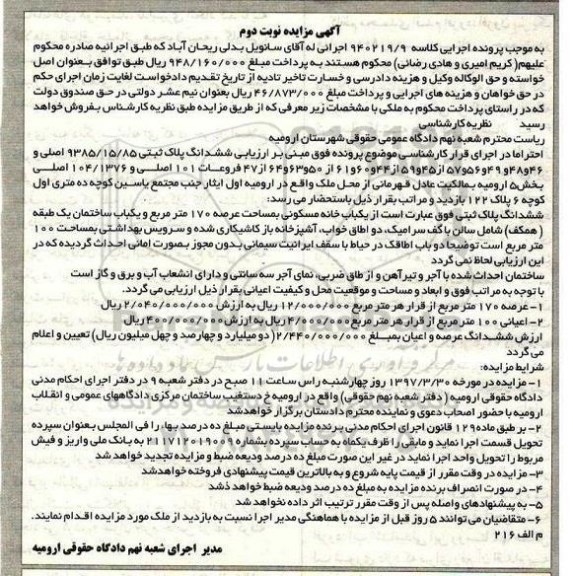 آگهی مزایده نوبت دوم
به موجب پرونده اجرایی کلاسه ۹۴۰۲۱۹/۹ اجرائی له آقای سانویل بدلی ریحان آباد که طبق اجرائیه صادره محکوم
علیهم( کریم امیری و هادی رضائی) محکوم هستند به پرداخت مبلغ ۹۴۸/۱۶۰/۰۰۰ ریال طبق توافق بعنوان اصل
خواسته و حق الوکاله وکیل و هزینه دادرسی و خسارت تاخیر تادیه از تاریخ تقدیم دادخواست لغایت زمان اجرای حکم
در حق خواهان و هزینه های اجرایی و پرداخت مبلغ ۴۶/۸۷۳/۰۰۰ ریال بعنوان نیم عشر دولتی در حق صندوق دولت
که در راستای پرداخت محکوم به ملکی با مشخصات زیر معرفی که از طریق مزایده طبق نظریه کارشناس بفروش خواهد
رسید نظریه کارشناسی
ریاست محترم شعبه نهم دادگاه عمومی حقوقی شهرستان ارومیه
احتراما در اجرای قرار کارشناسی موضوع پرونده فوق مبنی بر ارزیابی ششدانگ پلاک ثبتی ۹۳۸۵/۱۵/۸۵ اصلی و
۴۶و۴۸و۴۹و۵۶و۵۷ از ۴۵و۵۹ از ۴۴و۶۰و۶۱ از ۵۰و۶۳و۶۴ از ۴۷ فروعات ۱۰۱ اصلی و ۱۰۴/۱۳۷۶ اصلی
بخش۵ ارومیه بمالکیت عادل قهرمانی از محل ملک واقع در ارومیه اول ایثار جنب مجتمع یاسین کوچه ده متری اول
کوچه ۶ پلاک ۱۲۲ بازدید و مراتب بقرار ذیل باستحضار می رسد:
ششدانگ پلاک ثبتی فوق عبارت است از یکباب خانه مسکونی بمساحت عرصه ۱۷۰ متر مربع و یکباب ساختمان یک طبقه
( همکف) شامل سالن با کف سرامیک، دو اطاق خواب، آشپزخانه باز کاشیکاری شده و سرویس بهداشتی بمساحت ۱۰۰
متر مربع است توضیحا دو باب اطاقک در حیاط با سقف ایرانیت سیمانی بدون مجوز بصورت امانی احداث گردیده که در
این ارزیابی لحاظ نمی گردد
ساختمان احداث شده با آجر و تیرآهن و از طاق ضربی، نمای آجر سه سانتی و دارای انشعاب آب و برق و گاز است
با توجه به مراتب فوق و ابعاد و مساحت و موقعیت محل و کیفیت اعیانی بقرار ذیل ارزیابی می گردد.
۱- عرصه ۱۷۰ متر مربع از قرار هر متر مربع ۱۲/۰۰۰/۰۰۰ ریال به ارزش ۲/۰۴۰/۰۰۰/۰۰۰ ریال
۲- اعیانی ۱۰۰ متر مربع از قرار هر متر مربع ۴/۰۰۰/۰۰۰ ریال به ارزش ۴۰۰/۰۰۰/۰۰۰ ریال
ارزش ششدانگ عرصه و اعیان بمبلغ ۲/۴۴۰/۰۰۰/۰۰۰( دو میلیارد و چهارصد و چهل میلیون ریال) تعیین و اعلام
می گردد
شرایط مزایده:
۱- مزایده در مورخه ۱۳۹۷/۳/۳۰ روز چهارشنبه راس ساعت ۱۱ صبح در دفتر شعبه ۹ در دفتر اجرای احکام مدنی
دادگاه حقوقی ارومیه ( دفتر شعبه نهم حقوقی) واقع در ارومیه خ دستغیب ساختمان مرکزی دادگاههای عمومی و انقلاب
ارومیه با حضور اصحاب دعوی و نماینده محترم دادستان برگزار خواهد شد
۲- بر طبق ماده ۱۲۹ قانون اجرای احکام مدنی برنده مزایده بایستی مبلغ ده درصد بها را فی المجلس بعنوان سپرده
تحویل قسمت اجرا نماید و مابقی را ظرف یکماه به حساب سپرده بشماره ۲۱۱۷۱۲۰۱۹۰۰۱ به بانک ملی واریز و فیش
مربوط را تحویل واحد اجرا نماید در غیر این صورت مبلغ ده درصد ودیعه ضبط و مزایده تجدید خواهد شد
۳- مزایده در وقت مقرر از قیمت پایه شروع و به بالاترین قیمت پیشنهادی فروخته خواهد شد
۴- در صورت انصراف برنده مزایده به مبلغ ده درصد ودیعه ضبط خواهد شد
۵- به پیشنهادهای واصله پس از وقت مقرر ترتیب اثر داده نخواهد شد
۶- متقاضیان می توانند ۵ روز قبل از مزایده با هماهنگی مدیر اجرا نسبت به بازدید از ملک مورد مزایده اقدام نمایند.
م الف ۲۱۶
مدیر اجرای شعبه نهم دادگاه حقوقی ارومیه